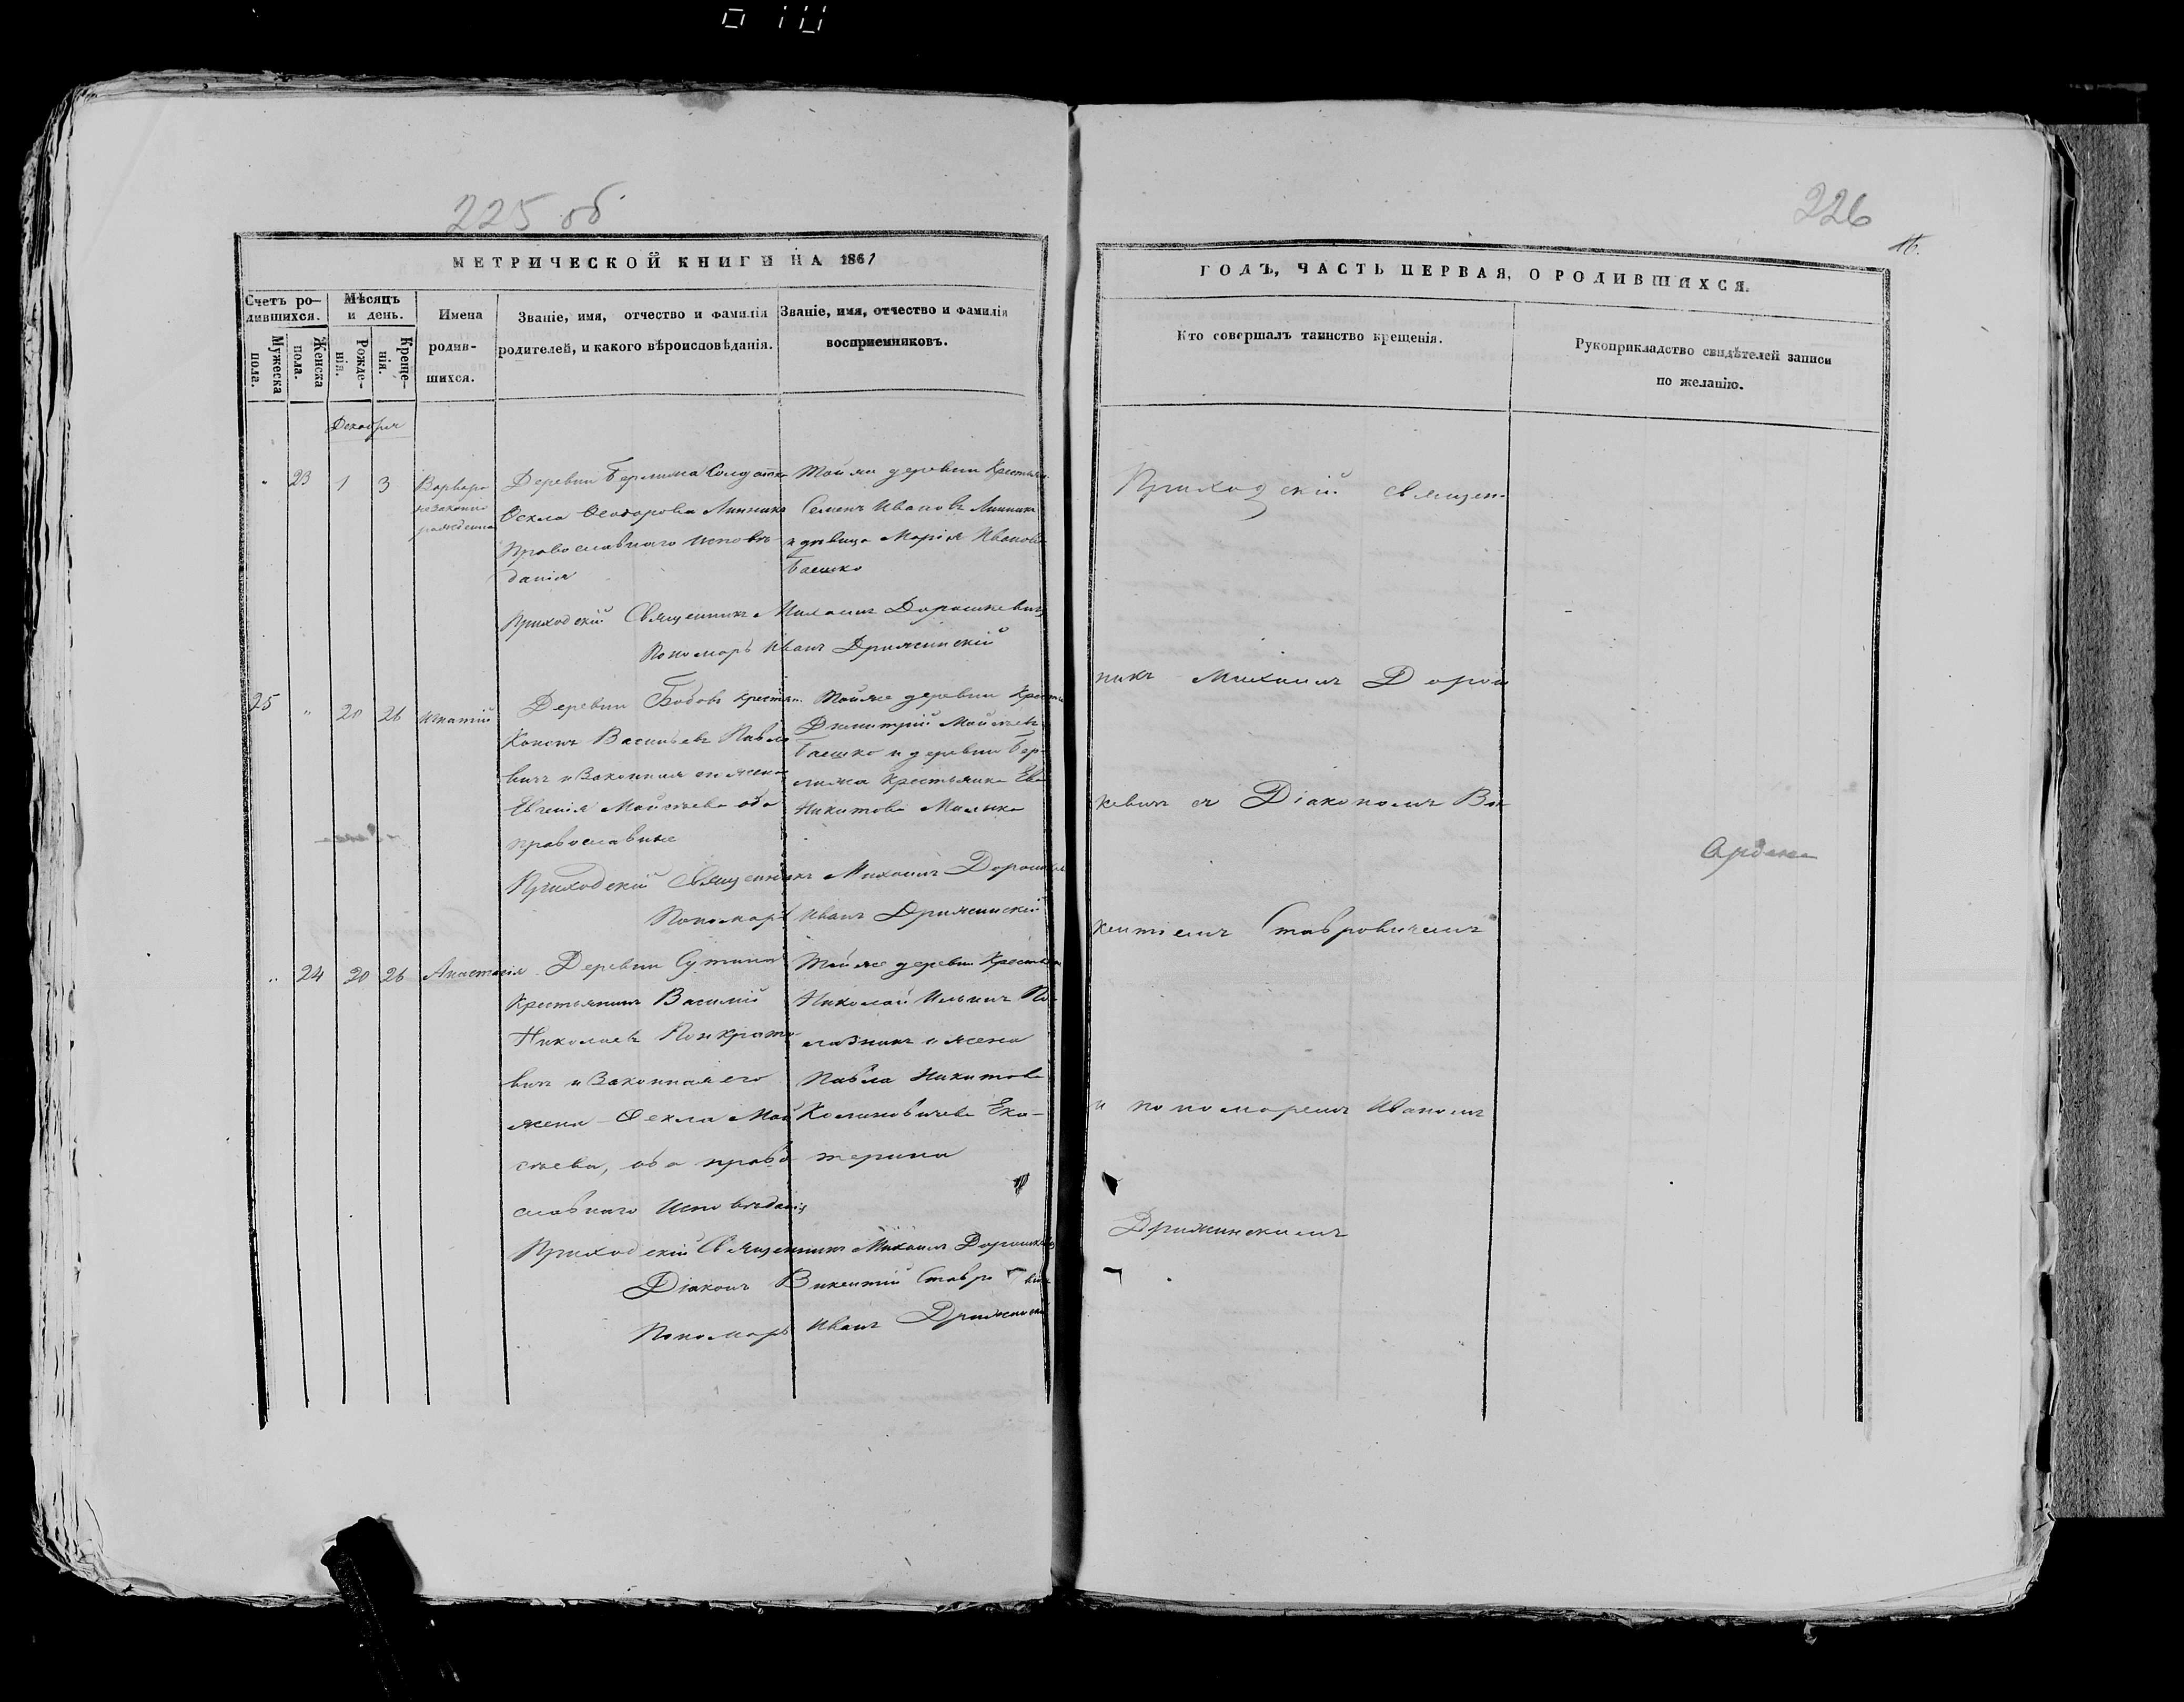 225 об
МЕТРИЧЕСКОЙ КНИГИ НА 1861
Счетъ ро-
дившихся.
Мѣсяцъ
и день.
Имена
родив-
шихся.
Званіе, имя, отчество и фамилія
родителей, и какого вѣроисповѣданія.
Званіе, имя, отчество и фамилія
воспріемниковъ.
Мужеска
пола.
Женска
пола.
Рожде-
нія.
Креще-
нія.
Декабря
23 1 3 Варвара
незаконно
рожденна
Деревни Солдатка
Ѳекла Ѳеодорова Линника
православнаго исповѣ-
данія
Той же деревни Крестьян.
Семенъ Ивановъ Линникъ
и дѣвица Марія Иванова
Баешко
Приходскій Священникъ Михаилъ Дорошкевичъ
Пономарь Иванъ Дрижинскій
25 " 20 26 Игнатій
Деревни Бобовъ крестьян.
Кононъ Васильевъ Павло
вичъ и законная его жена
Евгенія Моисеева оба
православные
Той же деревни
Димитрій Моисеевъ
Баешко и деревни Бер-
лижа крестьянка Ева
Никитова
Приходскій Священникъ Михаилъ
Пономарь Иванъ Дрижинскій
" 24 20 26 Анастасія
Деревни Сутина
Крестьянинъ Василій
Николаевъ Панкрато-
вичъ и законная его
жена Ѳекла Мой
сѣева, оба право
славнаго исповѣданія
Той же деревни Крестьянинъ
Николай Ильинъ По-
лазникъ и жена
Павла Никитова
Климовичева Ека-
терина
Приходскій Священникъ Михаилъ Дорошкевичъ
Діаконъ Викентій
Пономарь Иванъ Дрижинскій
226
16.
ГОДЪ, ЧАСТЬ ПЕРВАЯ, О РОДИВШИХСЯ.
Кто совершалъ таинство крещенія.
Рукоприкладство свидѣтелей записи
по желанію.
Приходскій священ-
никъ Михаилъ Дорош
кевичъ съ Діакономъ Ви
кентіемъ Ставровичемъ
и пономаремъ Иваномъ
Дрижинскимъ